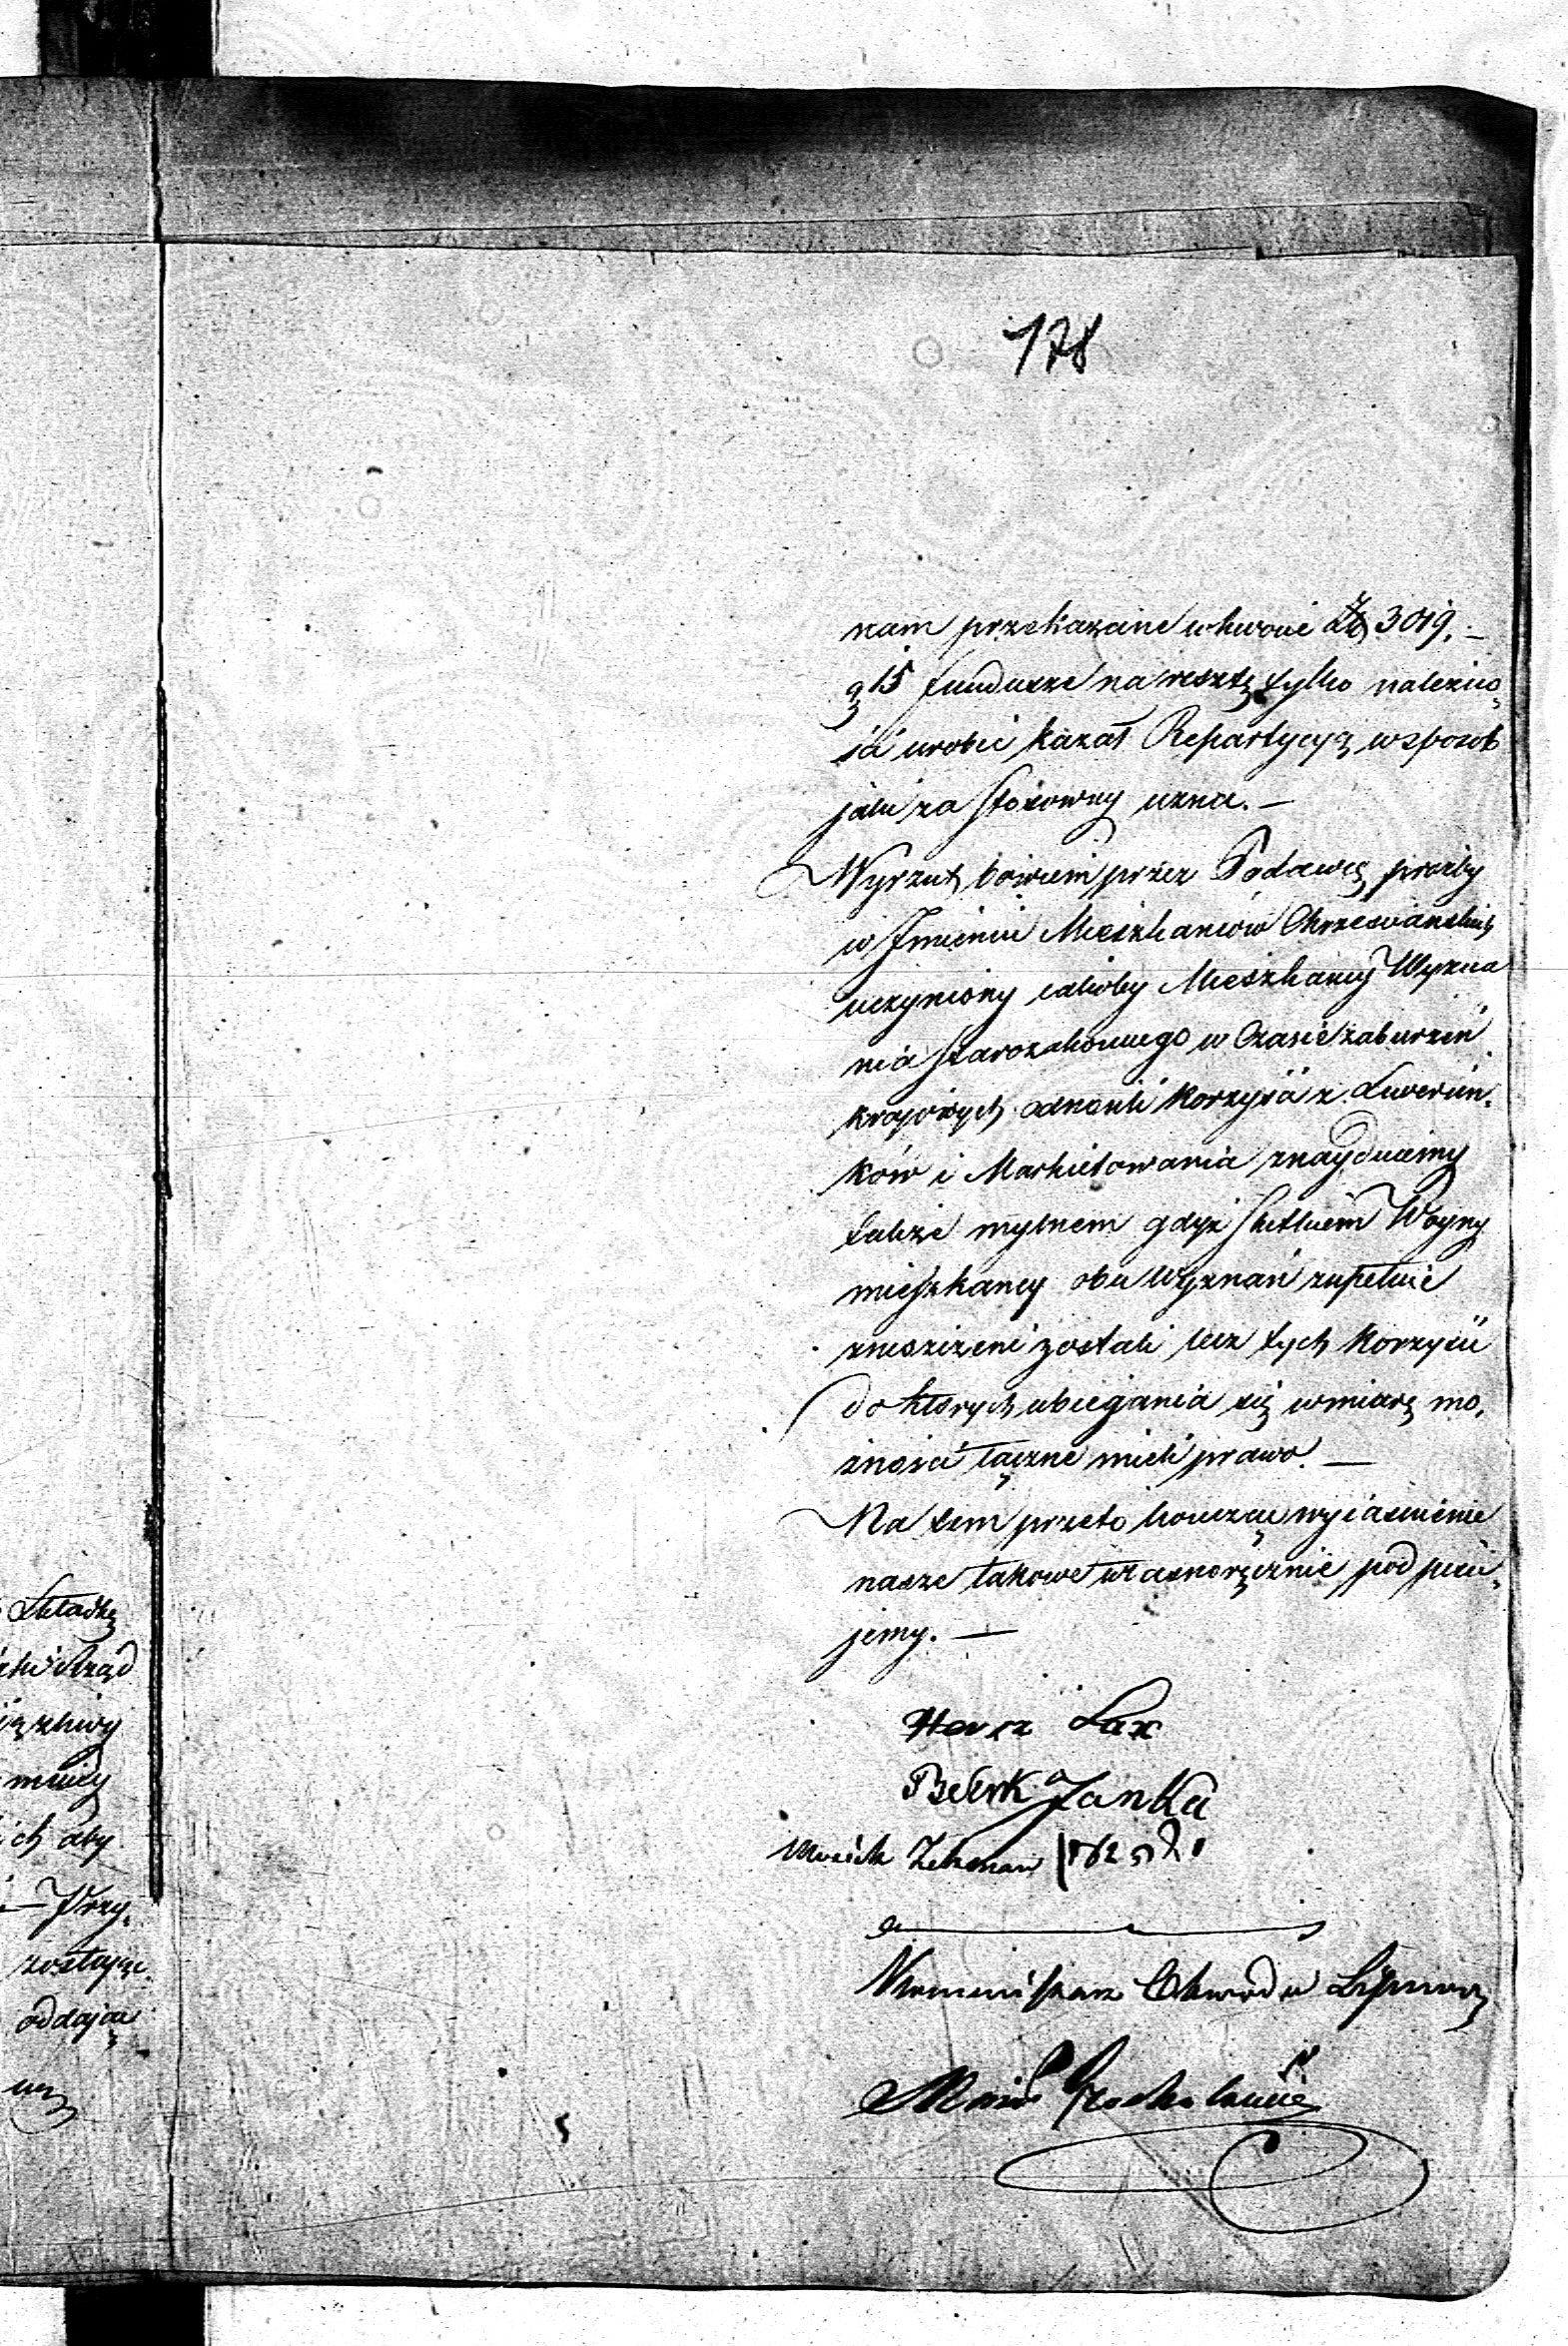 178
nam przekazane w kwocie Zł 3019.—
g 15 fundusze na resztę tylko należno
ści urobić kazał Repartycyą w sposob
jaki za stosowny uzna.—
Wyrzut bowiem przez Podawcę prozby
w Imieniu Mieszkancow Chrzescianskich
uczyniony jakoby Mieszkancy Wyzna
nia Starozakonnego w Czasie zaburzeń
krajowych odnosili korzyści z Liwerun,
ków i Markietowania znayduiemy
także mylnem gdyż skutkiem Woyny
mieszkancy obu Wyznań zupełnie
zniszczeni zostali lecz tych korzyści
do ktorych ubiegania się w miarę mo,
żności łączne mieli prawo.—
Na tem przeto kończąc wyiasnienie
nasze takowe własnoręcznie podpisu,
jemy.—
Hersz Lax
Berek Janka
Mosiek
Kommissarz Obwodu
Składkę
Rząd
mniey
ich aby
— Przy,
zostające
oddając